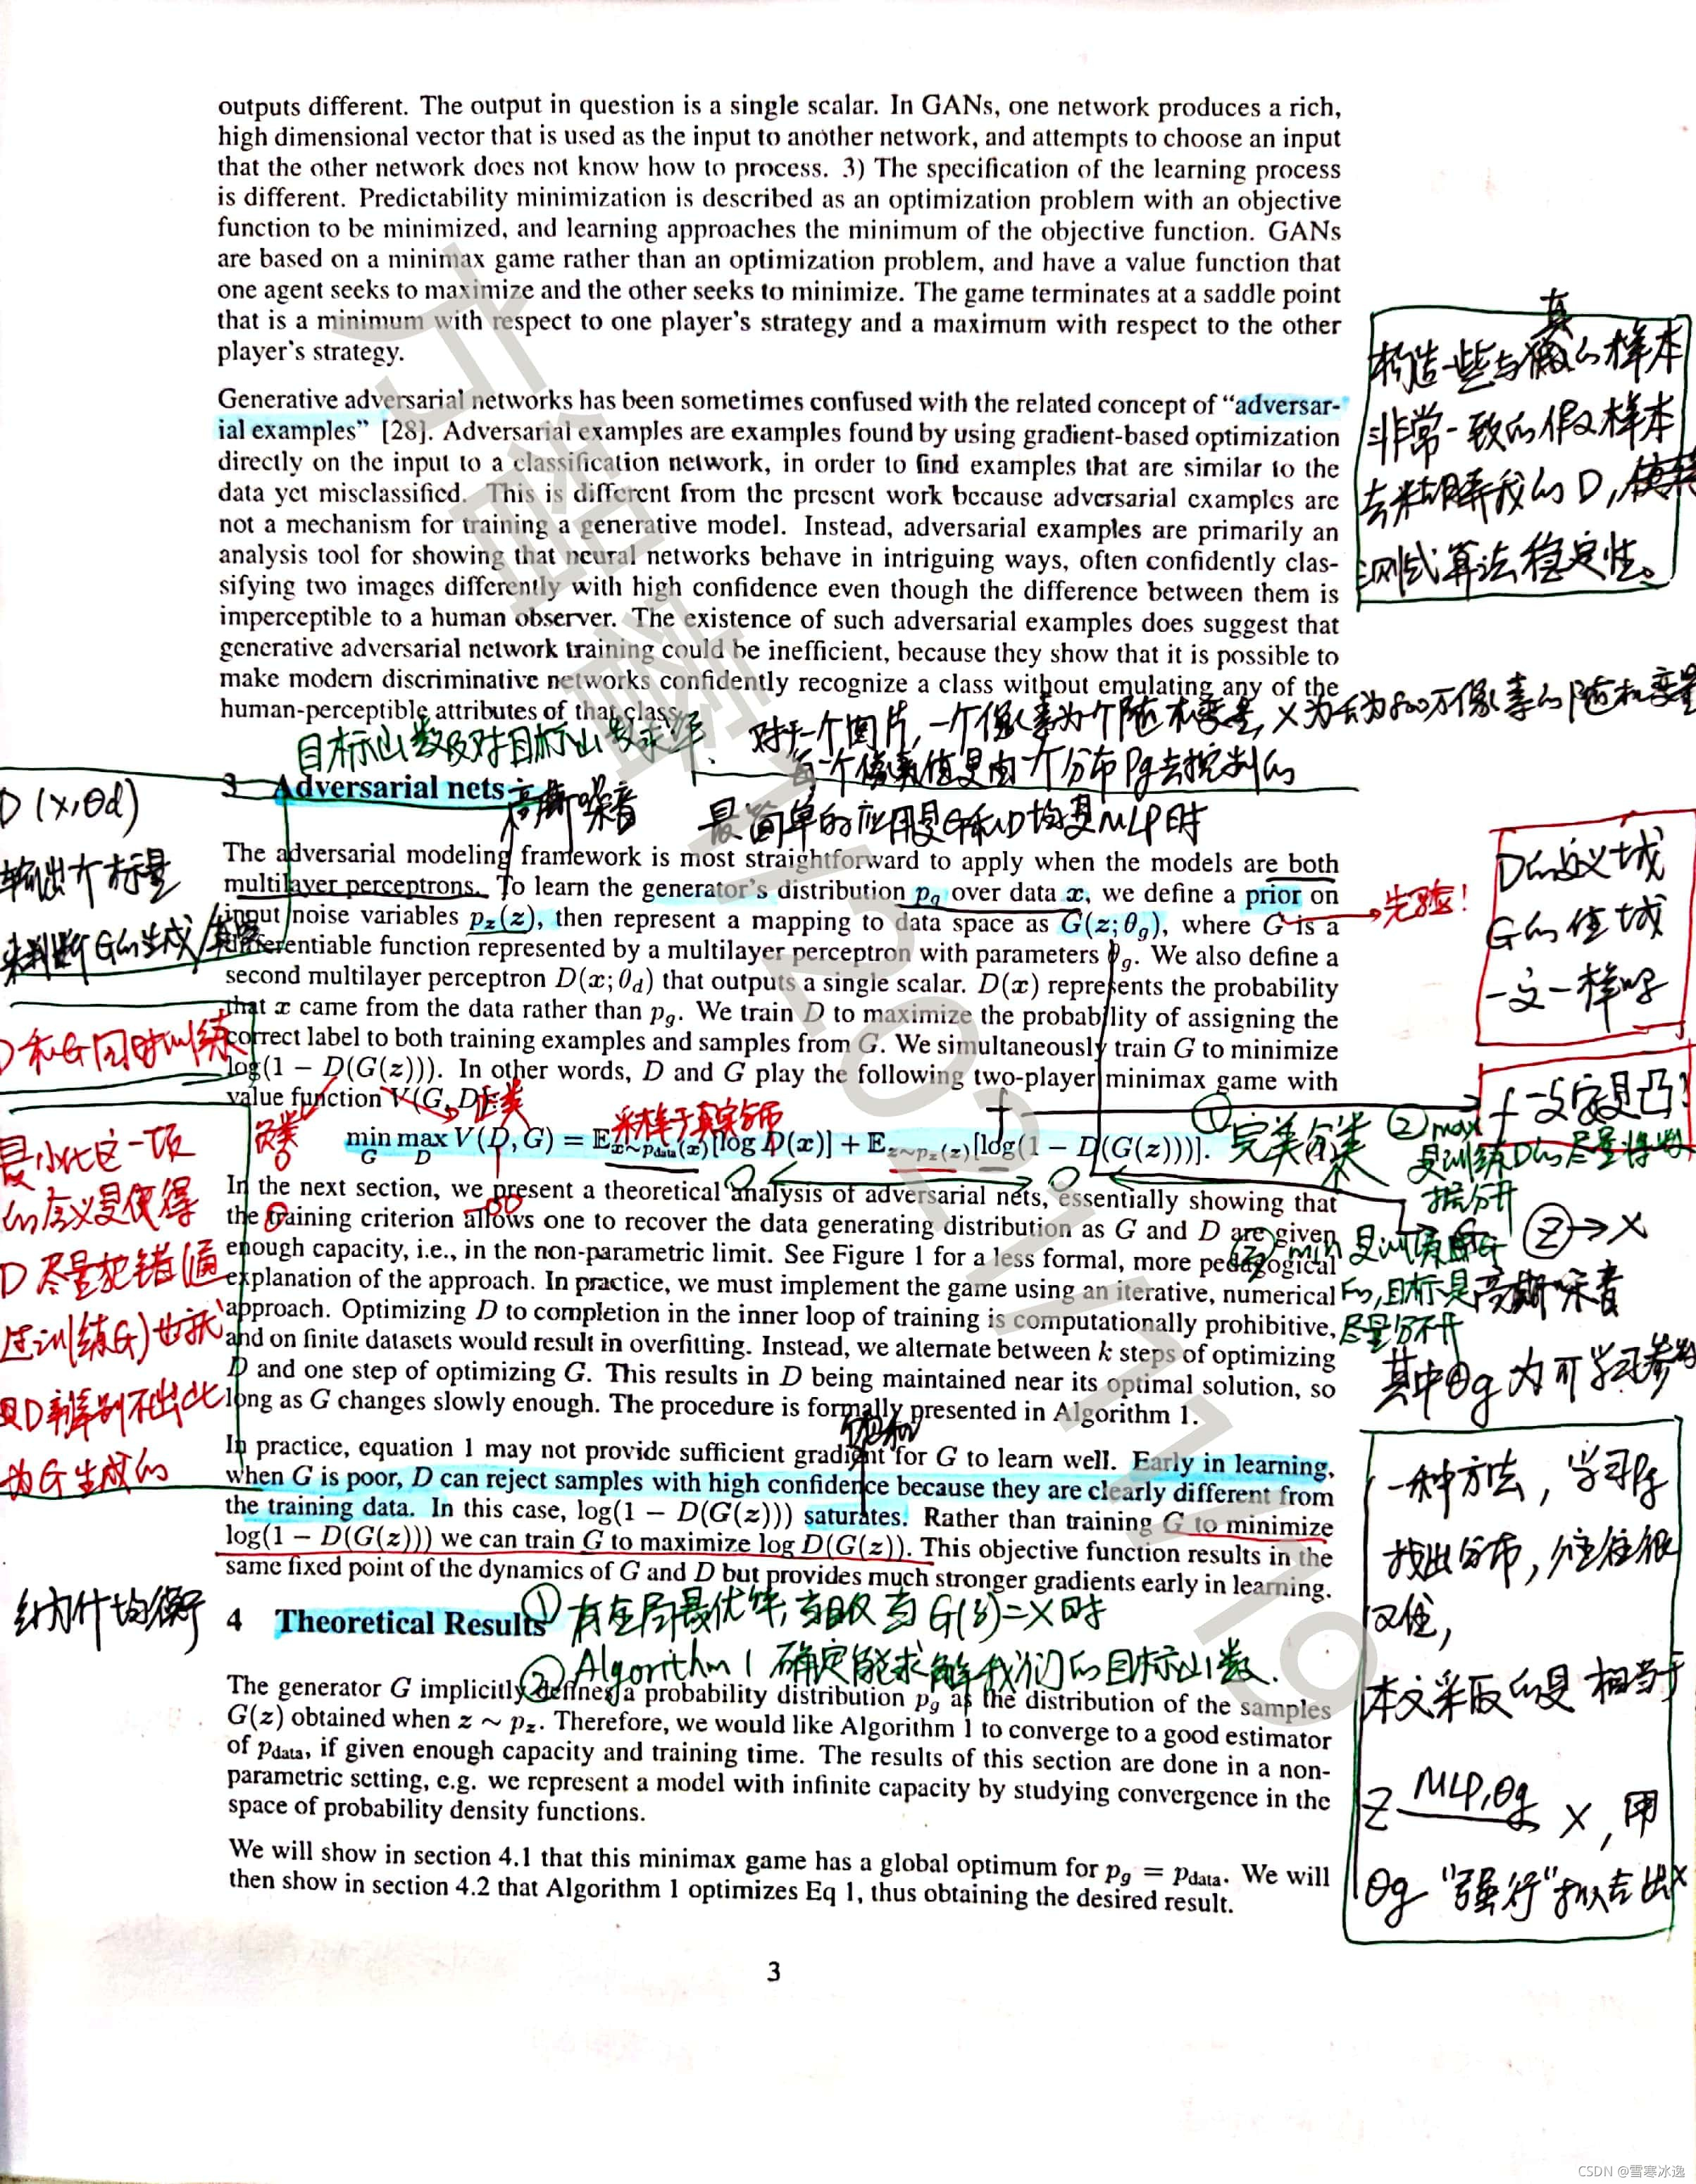 outputs different. The output in question is a single scalar. In GANs, one network produces a rich,
high dimensional vector that is used as the input to another network, and attempts to choose an input
that the other network does not know how to process. 3) The specification of the learning process
is different. Predictability minimization is described as an optimization problem with an objective
function to be minimized, and learning approaches the minimum of the objective function. GANs
are based on a minimax game rather than an optimization problem, and have a value function that
one agent seeks to maximize and the other seeks to minimize. The game terminates at a saddle point
that is a minimum with respect to one player's strategy and a maximum with respect to the other
player's strategy.
真
构造一些与的样本
非常一致的假样本
去糊弄我的D,
测试算法稳定性。
Generative adversarial networks has been sometimes confused with the related concept of “adversar-
ial examples” [28]. Adversarial examples are examples found by using gradient-based optimization
directly on the input to a classification network, in order to find examples that are similar to the
data yet misclassified. This is different from the present work because adversarial examples are
not a mechanism for training a generative model. Instead, adversarial examples are primarily an
analysis tool for showing that neural networks behave in intriguing ways, often confidently clas-
sifying two images differently with high confidence even though the difference between them is
imperceptible to a human observer. The existence of such adversarial examples does suggest that
generative adversarial network training could be inefficient, because they show that it is possible to
make modern discriminative networks confidently recognize a class without emulating any of the
human-perceptible attributes of that class.
目标函数及对目标函数求解
对于一个图片,一个像素为个随机变量,X为800万像素的随机变量
每个像素值是由一个分布Pg去控制的
3 Adversarial nets
高斯噪音
最简单的应用是G和D均是MLP时
D(x,θd)
输出个标量
来判断G的生成
The adversarial modeling framework is most straightforward to apply when the models are both
multilayer perceptrons. To learn the generator's distribution pg over data x, we define a prior on
input noise variables pz(z), then represent a mapping to data space as G(z; θg), where G is a
differentiable function represented by a multilayer perceptron with parameters θg. We also define a
second multilayer perceptron D(x; θd) that outputs a single scalar. D(x) represents the probability
that x came from the data rather than pg. We train D to maximize the probability of assigning the
correct label to both training examples and samples from G. We simultaneously train G to minimize
log(1 − D(G(z))). In other words, D and G play the following two-player minimax game with
value function V(G, D):
先验!
D的定义域
G的值域
一定一样吗
D和G同时训练
正类
采样于真实分布
f
f一定是凸?
min max V(D, G) = E x∼pdata(x)[log D(x)] + E z∼pz(z)[log(1 − D(G(z)))].
G D
① 完美分类
② max
是训练D的尽量将数
据分开
最小化这一项
的含义是使得
D尽量犯错(通
过训练G)也就
是D辨别不出此
为G生成的
In the next section, we present a theoretical analysis of adversarial nets, essentially showing that
the training criterion allows one to recover the data generating distribution as G and D are given
enough capacity, i.e., in the non-parametric limit. See Figure 1 for a less formal, more pedagogical
explanation of the approach. In practice, we must implement the game using an iterative, numerical
approach. Optimizing D to completion in the inner loop of training is computationally prohibitive,
and on finite datasets would result in overfitting. Instead, we alternate between k steps of optimizing
D and one step of optimizing G. This results in D being maintained near its optimal solution, so
long as G changes slowly enough. The procedure is formally presented in Algorithm 1.
min 是训练G
的,目标是
尽量分不开
Z→X
高斯噪音
其中θg为可学习参数
饱和
In practice, equation 1 may not provide sufficient gradient for G to learn well. Early in learning,
when G is poor, D can reject samples with high confidence because they are clearly different from
the training data. In this case, log(1 − D(G(z))) saturates. Rather than training G to minimize
log(1 − D(G(z))) we can train G to maximize log D(G(z)). This objective function results in the
same fixed point of the dynamics of G and D but provides much stronger gradients early in learning.
一种方法,学习
找出分布,往往很
难,
本文采取的是相当于
Z MLP,θg X,用
θg“强行”拟合出X
纳什均衡
4 Theoretical Results
① 有全局最优解,当且仅当G(z)=X时
② Algorithm 1 确定能求解我们的目标函数.
The generator G implicitly defines a probability distribution pg as the distribution of the samples
G(z) obtained when z ∼ pz. Therefore, we would like Algorithm 1 to converge to a good estimator
of pdata, if given enough capacity and training time. The results of this section are done in a non-
parametric setting, e.g. we represent a model with infinite capacity by studying convergence in the
space of probability density functions.
We will show in section 4.1 that this minimax game has a global optimum for pg = pdata. We will
then show in section 4.2 that Algorithm 1 optimizes Eq 1, thus obtaining the desired result.
3
2021/11/19
CSDN @雪寒冰逸